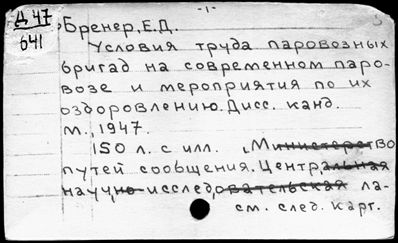 -1-
Д 47
641
Бренер, Е.Д.
Условия труда паровозных
бригад на современном паро-
возе и мероприятия по их
оздоровлению. Дисс. канд.
М., 1947.
150 л. с илл. (Министерство
путей сообщения. Центральная
научно-исследовательская ла-
см. след. карт.